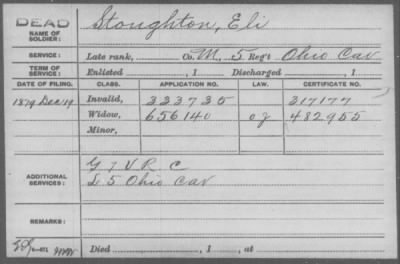 DEAD
NAME OF SOLDIER: Stoughton, Eli
SERVICE: Late rank, Co. M, 5 Reg't Ohio Cav
TERM OF SERVICE: Enlisted , 1 Discharged , 1
DATE OF FILING. CLASS. APPLICATION NO. LAW. CERTIFICATE NO.
1879 Dec 19 Invalid, 323735 317177
Widow, 656140 of 482955
Minor,
ADDITIONAL SERVICES: G 7 V R C
L 5 Ohio Cav
REMARKS:
Died , 1 , at